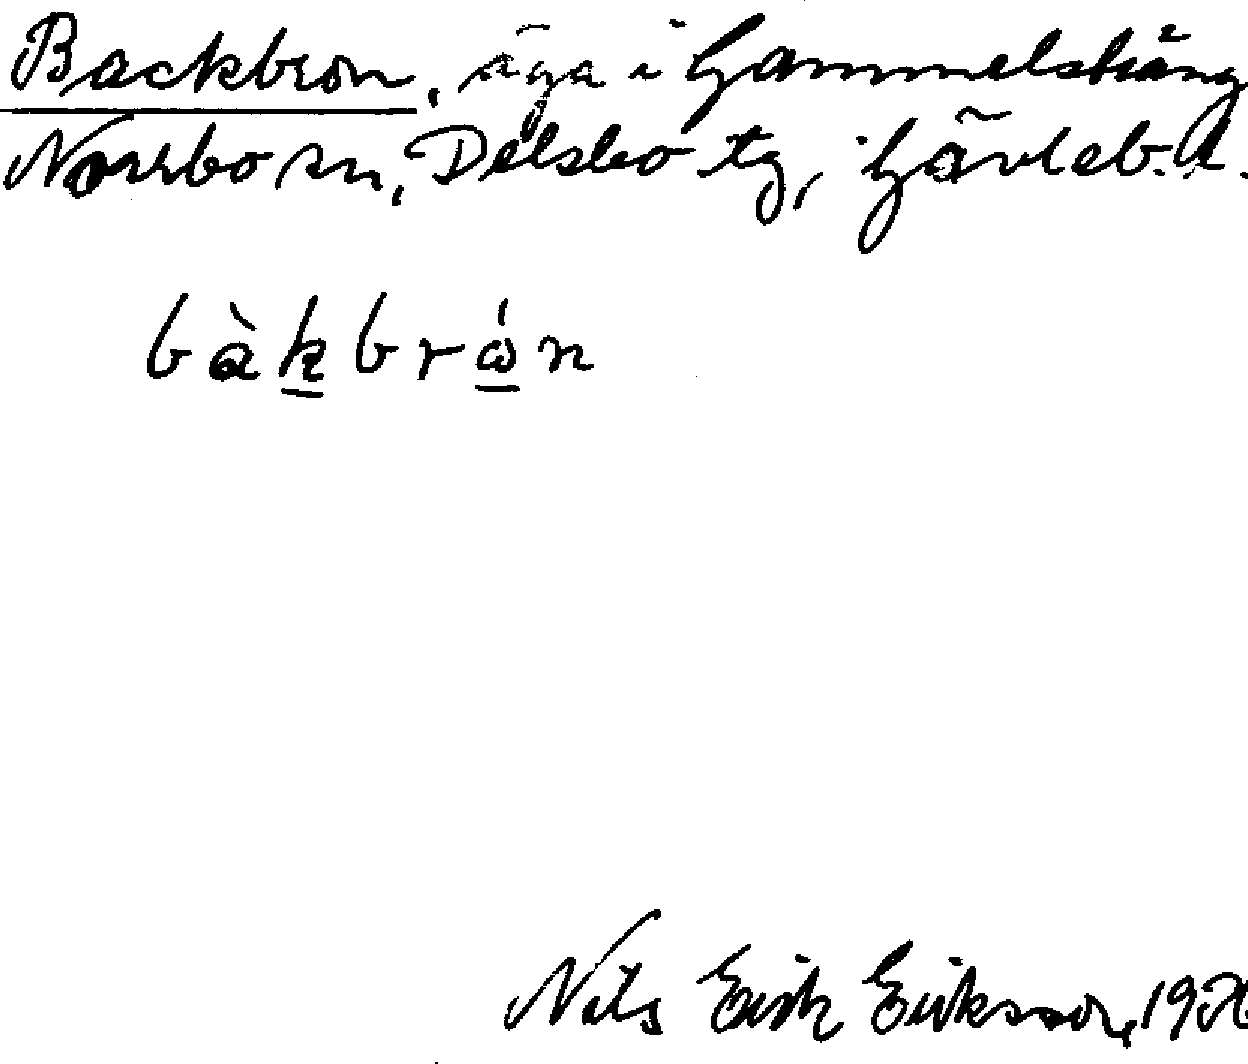 Backbron, äga i Gammelsträng
Norrbo sn, Delsbo tg, Gävleb. l.
bàkbrɷ́n
Nils Erik Eriksson,